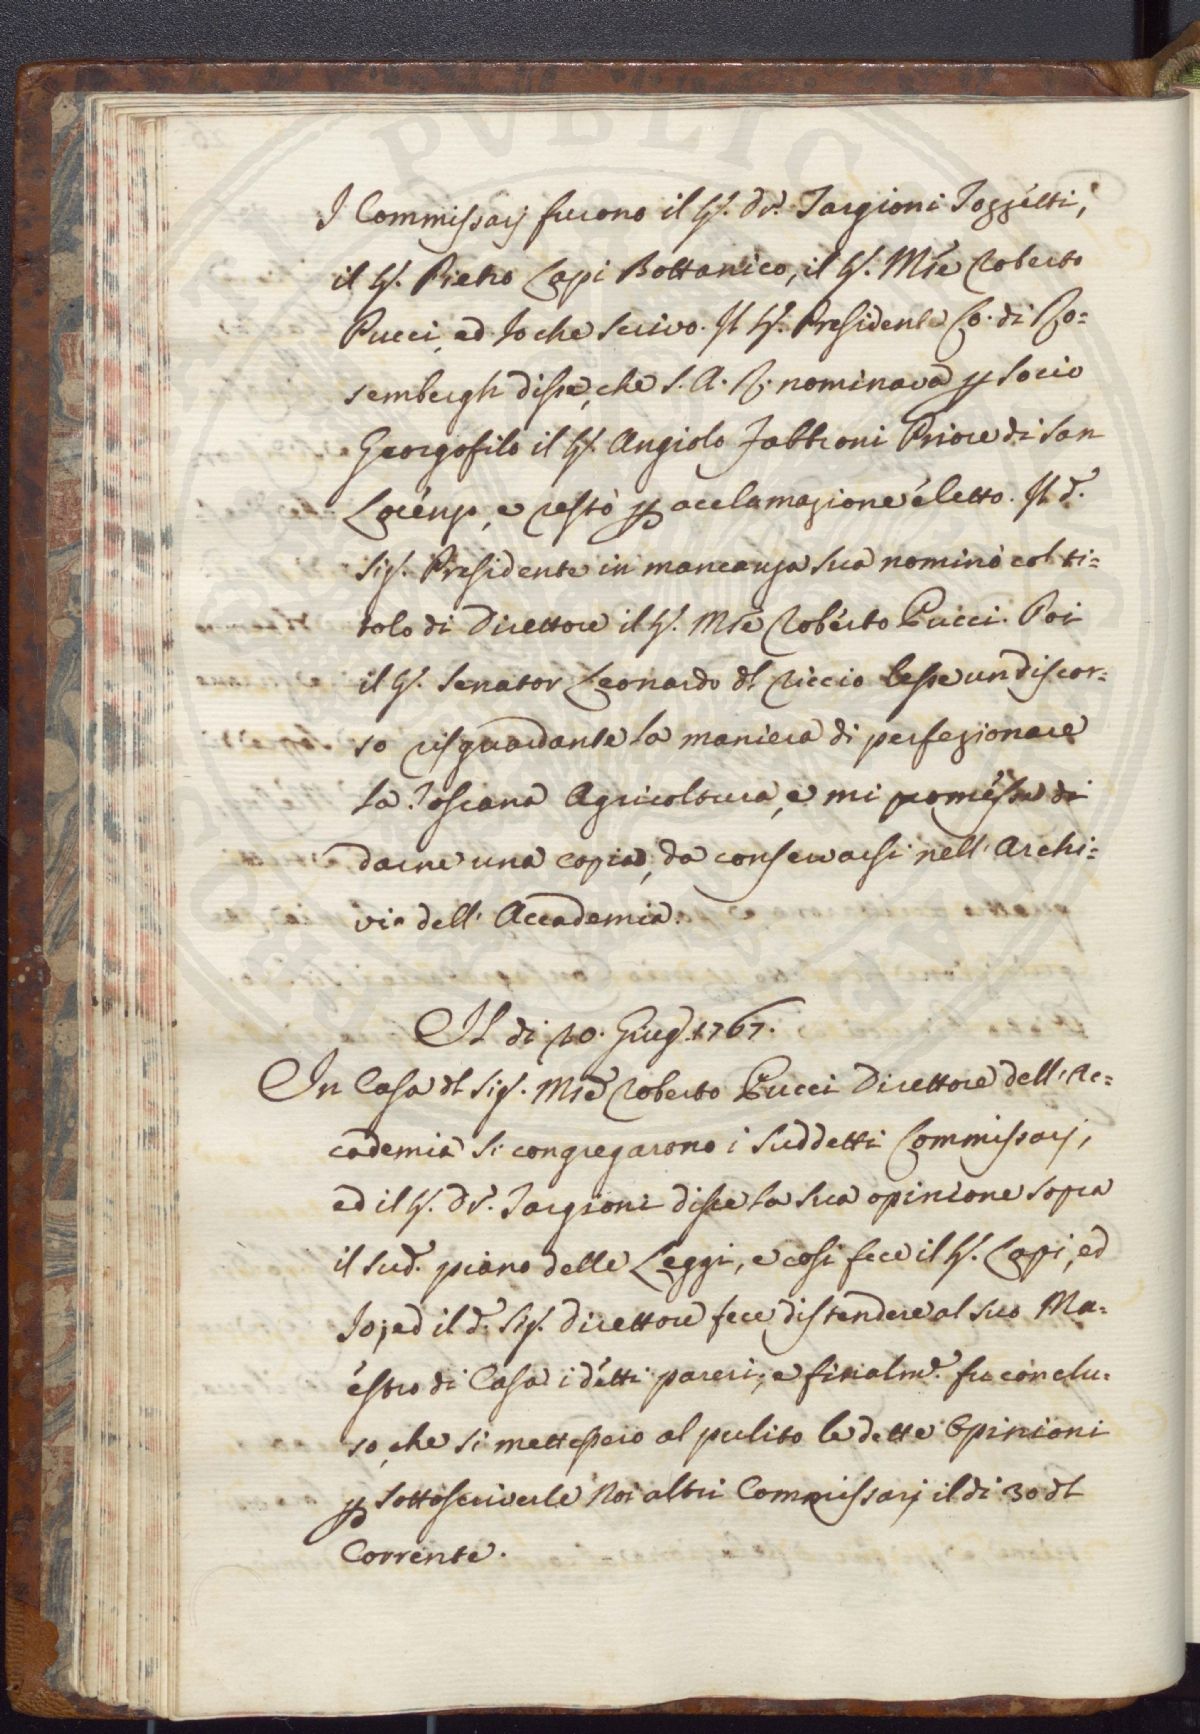 I Commissarj furono il Sig. Dr. Targioni Tozzetti,
il Sig. Pietro Lapi Bottanico, il Sig. Mse Roberto
Pucci, ed Io che scrivo. Il Sig. Presidente Co. di Ro=
sembergh disse, che S. A. R. nominava p Socio
Georgofilo il Sig. Angiolo Fabbroni Priore di San
Lorenzo, e restò p acclamazione életto. Il d.
Sig. Presidente in mancanza sua nominò col ti=
tolo di Direttore il Sig. Mse Roberto Pucci. Poi
il Sig. Senator Leonardo dl Riccio lesse un discor=
so risguardante la maniera di perfezionare
la Toscana Agricoltura, e mi promésse di
darne una copia, da conservarsi nell' Archi=
vio dell' Accademia.
Il di 20. Giug. 1767.
In Casa dl Sig. Mse Roberto Pucci Direttore dell' Ac=
cademia si congregarono i suddetti Commissarj,
ed il Sig. Dr. Targioni disse la sua opinione sopra
il sud. piano delle Leggi, e così fece il Sig. Lapi, ed
Io; ed il d. Sig. Direttore fece distendere al suo Ma=
éstro di Casa i détti pareri; e finalme. fu conclu=
so, che si mettessero al pulito le dette Opinioni
p sottoscriverle Noi altri Commissarj il di 30 dl
Corrente.
PUBLIC